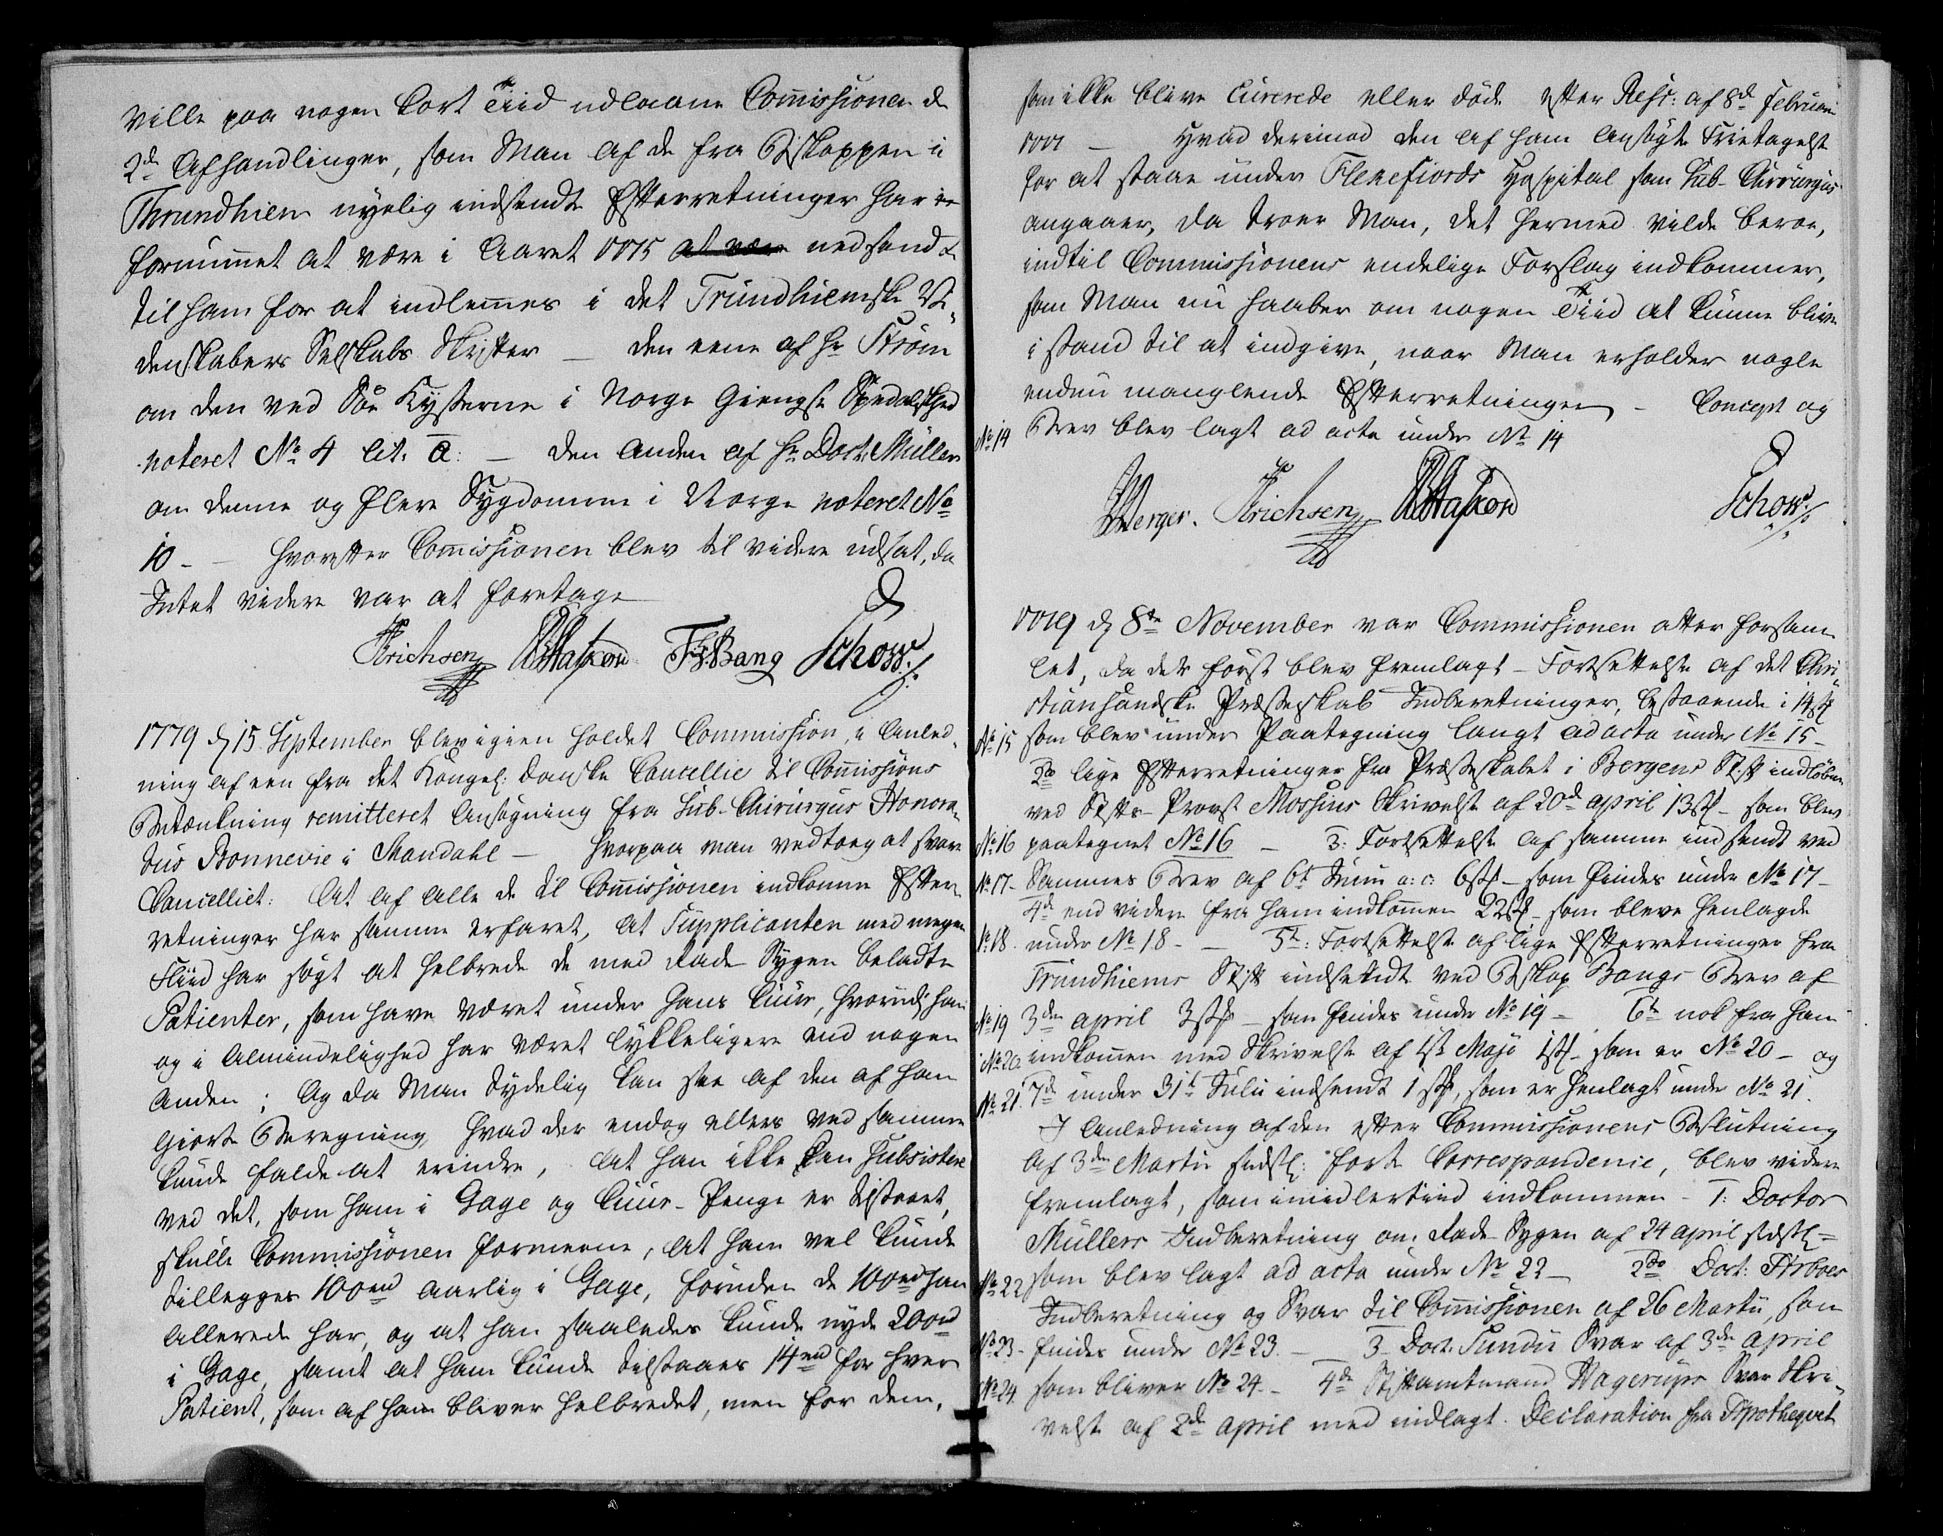 ville paa nogen kort Tiid udlaane Commissionen de
2de Afhandlinger, som Man af de fra Biskoppen i
Thrundhiem nyelig indsendte Efterretninger har
fornummet at være i Aaret 1775 at være nedsendt
til ham for at indlemmes i det Trundhiemske Vi-
denskabers Selskabs Skrifter — den eene af Hr Strøm
om den ved Søe Kysterne i Norge Giengse Spedalskhed
noteret No 4 lit. a: — den anden af Hr Doct: Müller
om denne og flere Sygdomme i Norge noteret No
10 — hvorefter Commissionen blev til videre udsat, da
Intet videre var at foretage
FS:Bang Schow
1779 d 15 September blev igien holdet Commission, i Anled-
ning af een fra det Kongel: Danske Cancellie til Commissions
Betænkning remitteret Ansøgning fra Sub-Chirurgus Honora-
tus Bonnevie i Mandahl — hvorpaa man vedtoeg at svare
Cancelliet: At af alle de til Commissionen indkomne Efter-
retninger har samme erfaret, at Supplicanten med megen
Fliid har søgt at helbrede de med Rade Sygen beladte
Patienter, som have været under hans Cuur, hvorudi han
og i Almindelighed har været lykkeligere end nogen
Anden; Og da Man tydelig kan see af den af ham
giorte Beregning hvad der endog ellers ved samme
kunde falde at erindre, at han ikke kan subsistere
ved det, som ham i Gage og Cuur-Penge er tilstaaet,
skulle Commissionen formeene, at ham vel kunde
tillegges 100 rd aarlig i Gage, foruden de 100 rd han
allerede har, og at han saaledes kunde nyde 200 rd
i Gage, samt at ham kunde tilstaaes 14 rd for hver
Patient, som af ham bliver helbredet, men for dem,
som ikke blive Curerede eller døde efter Resc: af 8de Februari
1771 — Hvad derimod den af ham Ansøgte Frietagelse
for at staae under Flekefiords Hospital som Sub-Chirurgus
angaaer, da troer Man, det hermed vilde beroe,
indtil Commissionens endelige Forslag indkommer,
som Man nu haaber om nogen Tiid at kunne blive
i stand til at indgive, naar Man erholder nogle
endnu manglende Efterretninger — Concept og
No 14 Brev blev lagt ad acta under No 14
Berger. Schow
1779 d 8de November var Commissionen atter forsam-
let, da det først blev fremlagt — Fortsettelse af det Chri-
stiansandske Præsteskab Indberetninger, bestaaende i 14 st
No 15 som blev under Paategning langt ad acta under No 15 —
2do lige Efterretninger fra Præsteskabet i Bergens Stift indløbne
ved Stifts-Provst Mossius Skrivelse af 20de april 13 st — som blev
No 16 paategnet No 16 — 3. Fortsettelse af samme indsendt ved
No 17 — Sammes Brev af 6t Junii a: c: 6 st — som findes under No 17 —
4de end videre fra ham indkommen 22 st — som bleve henlagde
No 18. under No 18 — — 5t: Fortsettelse af lige Efterretninger fra
Trundhiems Stift indsendt ved Biskop Bangs Brev af
No 19 3den april 3 st — som findes under No 19 — 6t nok fra ham
No 20 indkommen med Skrivelse af 1st Majo 1 st — som er No 20 — og
No 21 7de under 31t Julii indsendt 1 st, som er henlagt under No 21.
I Anledning af den efter Commissionens Beslutning
af 3den Martii sidstl: førte Correspondence, blev videre
fremlagt, som imidlertiid indkommen — 1: Doctor
Müllers Indberetning om Rade Sygen af 24 april sidstl —
No 22 som blev lagt ad acta under No 22 — 2do Doct: Arboes
Indberetning og Svar til Commissionen af 26 Martii, som
No 23 — findes under No 23. — 3 Doct: Sundii Svar af 3de april
No 24 som bliver No 24 — 4de Stiftamtmand Hagerups Svar Skri-
velse af 2de april med indlagt Declaration fra Apothequet